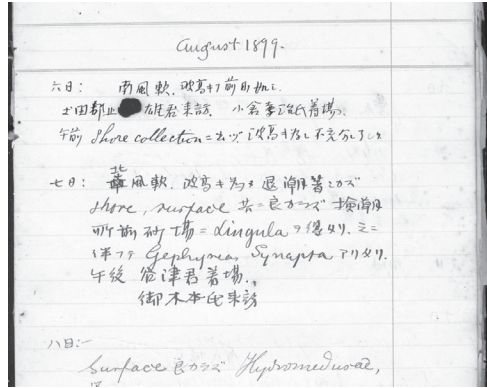 August 1899.
六日: 南風軟、波高キ了前日ノ如シ、
土田都止 雄君来訪、小倉 氏着場、
午前 Shore collection ニ出ツ 波高キ為メ不充分
七日: 北風軟、波高キ為メ退潮 カズ
shore, surface 共ニ良カラズ 検潮
所前砂場ニ Lingula ヲ得タリ、之ニ
伴フテ Gephyrea, Synapta アリタリ、
午後 谷津君着場、
御木本氏来訪
八日:一
Surface 良カラズ Hydromedusae,